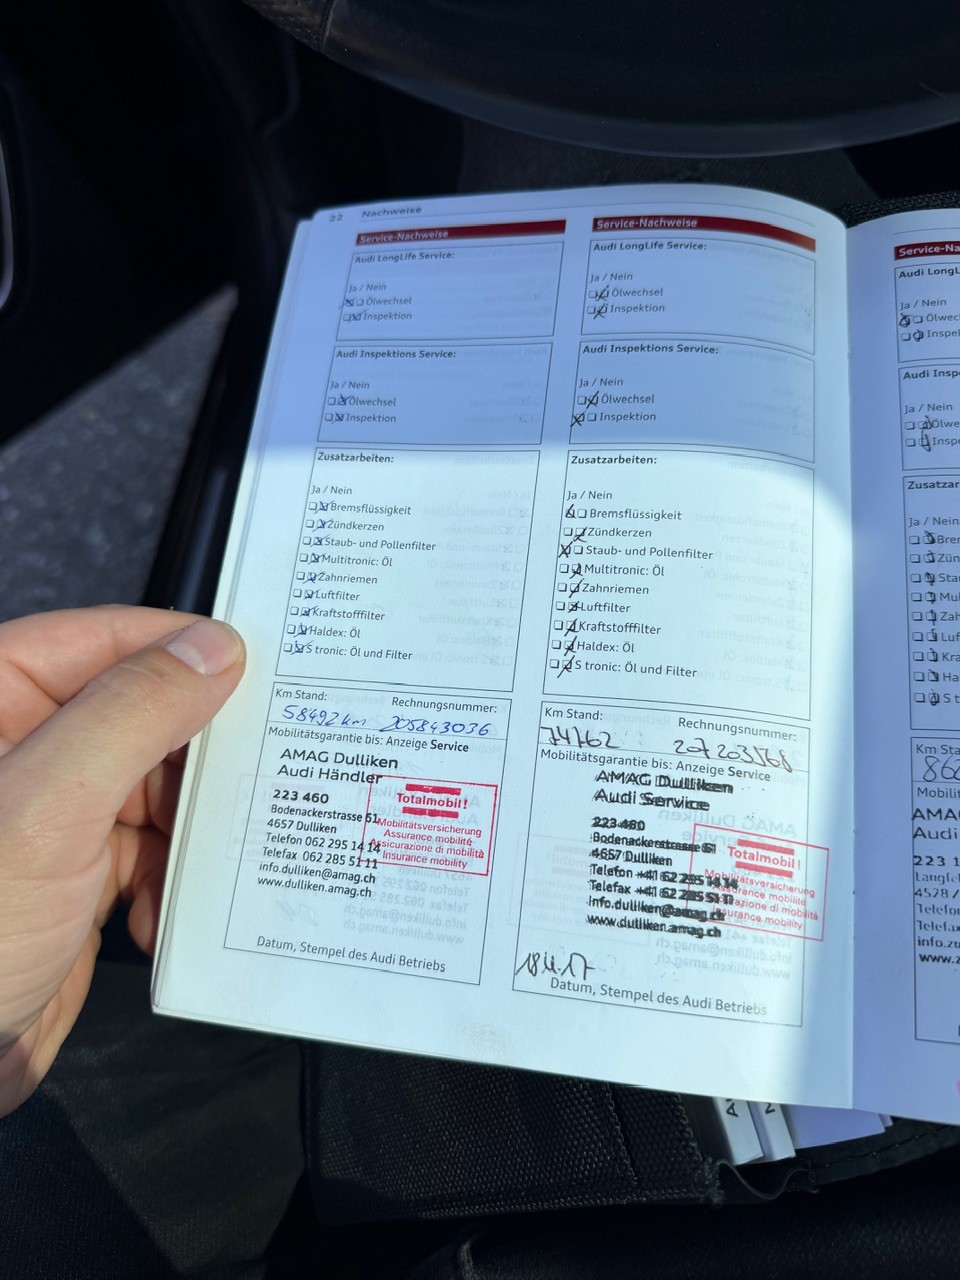 22 Nachweise
Service-Nachweise
Audi LongLife Service:
Ja / Nein
Ölwechsel
Inspektion
Audi Inspektions Service:
Ja / Nein
Ölwechsel
Inspektion
Zusatzarbeiten:
Ja / Nein
Bremsflüssigkeit
Zündkerzen
Staub- und Pollenfilter
Multitronic: Öl
Zahnriemen
Luftfilter
Kraftstofffilter
Haldex: Öl
S tronic: Öl und Filter
Km Stand: Rechnungsnummer:
58492 km 205843036
Mobilitätsgarantie bis: Anzeige Service
AMAG Dulliken
Audi Händler
223 460
Bodenackerstrasse 61
4657 Dulliken
Telefon 062 295 14 14
Telefax 062 285 51 11
info.dulliken@amag.ch
www.dulliken.amag.ch
Totalmobil!
Mobilitätsversicherung
Assurance mobilité
Assicurazione di mobilità
Insurance mobility
Datum, Stempel des Audi Betriebs
Service-Nachweise
Audi LongLife Service:
Ja / Nein
Ölwechsel
Inspektion
Audi Inspektions Service:
Ja / Nein
Ölwechsel
Inspektion
Zusatzarbeiten:
Ja / Nein
Bremsflüssigkeit
Zündkerzen
Staub- und Pollenfilter
Multitronic: Öl
Zahnriemen
Luftfilter
Kraftstofffilter
Haldex: Öl
S tronic: Öl und Filter
Km Stand: Rechnungsnummer:
74762 207203568
Mobilitätsgarantie bis: Anzeige Service
AMAG Dulliken
Audi Service
223 460
Bodenackerstrasse 61
4657 Dulliken
Telefon +41 62 295 14 14
Telefax +41 62 285 51 11
info.dulliken@amag.ch
www.dulliken.amag.ch
Totalmobil!
Mobilitätsversicherung
Assurance mobilité
Assicurazione di mobilità
Insurance mobility
Datum, Stempel des Audi Betriebs
Service-Na
Audi LongL
Ja / Nein
Ölwec
Inspe
Audi Insp
Ja / Nein
Ölwe
Insp
Zusatzar
Ja / Nein
Bren
Zün
Sta
Mul
Zah
Luf
Kra
Ha
S t
Km Sta
Mobilit
AMAG
Audi
223 1
Langfel
4528
Telefo
Telefax
info.zu
www.z